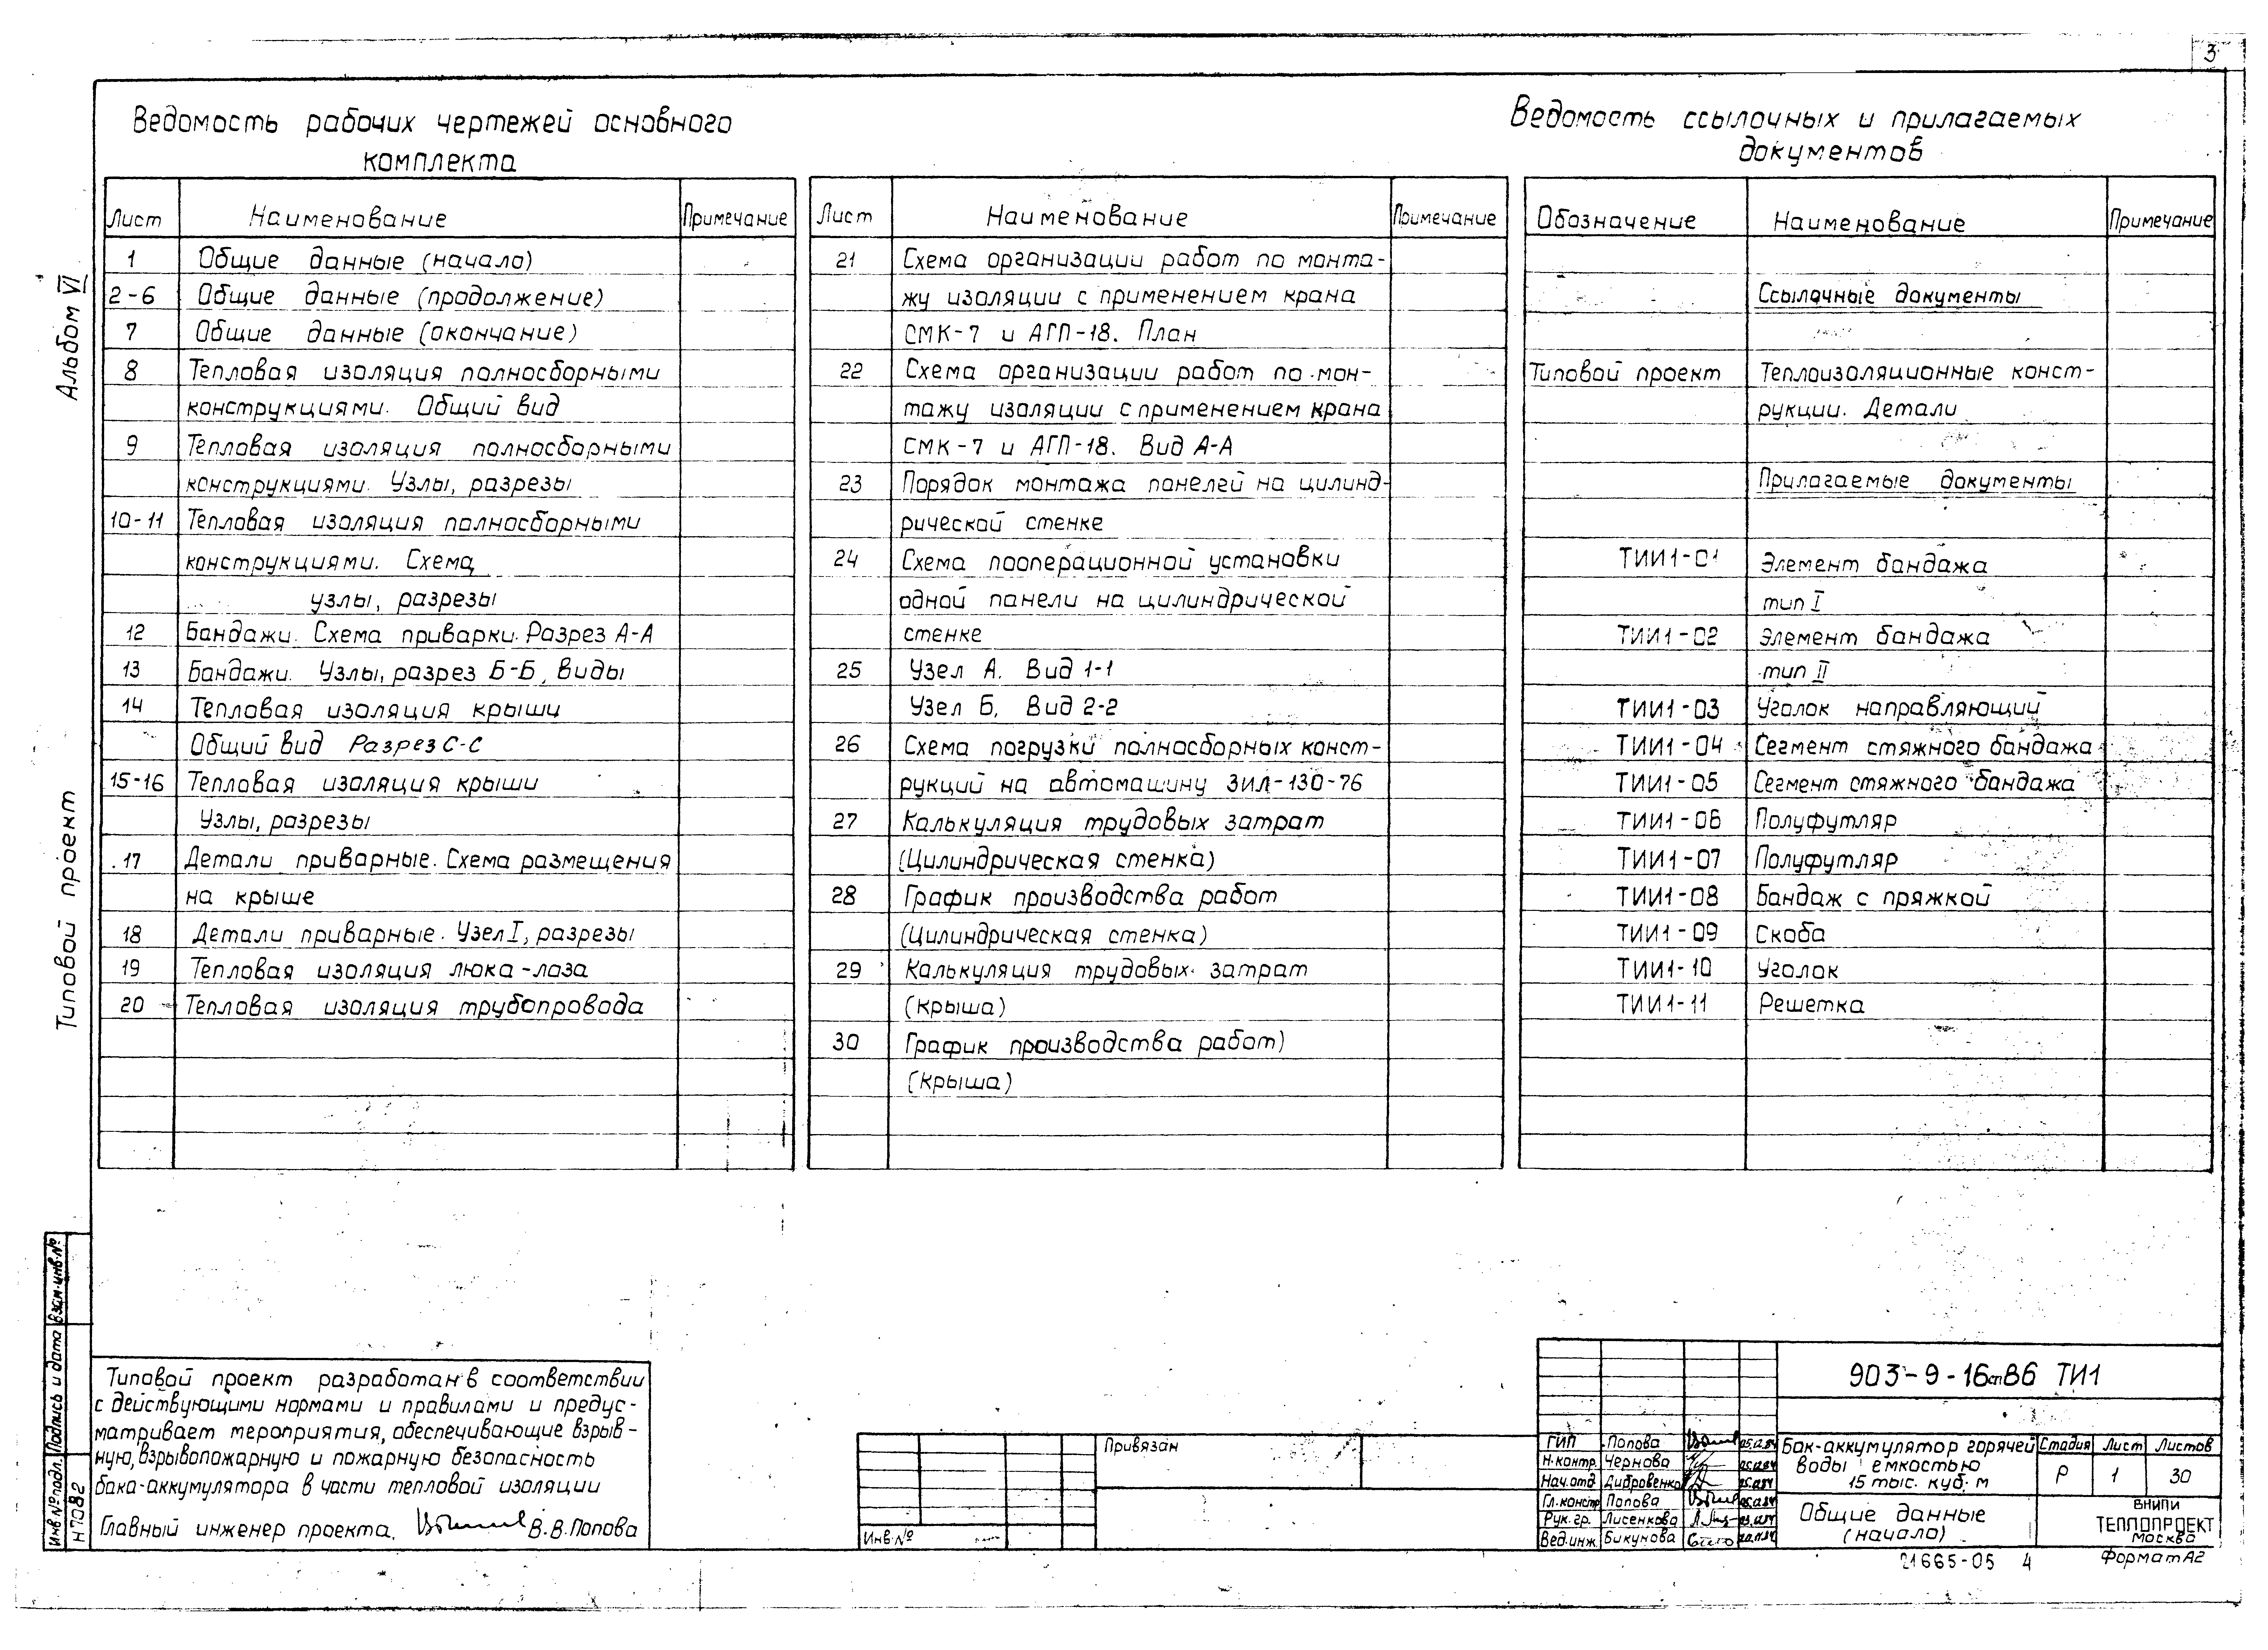 3
Ведомость рабочих чертежей основного
комплекта
Лист Наименование Примечание
1 Общие данные (начало)
2-6 Общие данные (продолжение)
7 Общие данные (окончание)
8 Тепловая изоляция полносборными
конструкциями. Общий вид
9 Тепловая изоляция полносборными
конструкциями. Узлы, разрезы
10-11 Тепловая изоляция полносборными
конструкциями. Схема,
узлы, разрезы
12 Бандажи. Схема приварки. Разрез А-А
13 Бандажи. Узлы, разрез Б-Б, виды
14 Тепловая изоляция крыши
Общий вид Разрез С-С
15-16 Тепловая изоляция крыши
Узлы, разрезы
17 Детали приварные. Схема размещения
на крыше
18 Детали приварные. Узел I, разрезы
19 Тепловая изоляция люка-лаза
20 Тепловая изоляция трубопровода
Лист Наименование Примечание
21 Схема организации работ по монта-
жу изоляции с применением крана
СМК-7 и АГП-18. План
22 Схема организации работ по мон-
тажу изоляции с применением крана
СМК-7 и АГП-18. Вид А-А
23 Порядок монтажа панелей на цилинд-
рической стенке
24 Схема пооперационной установки
одной панели на цилиндрической
стенке
25 Узел А. Вид 1-1
Узел Б, Вид 2-2
26 Схема погрузки полносборных конст-
рукций на автомашину ЗИЛ-130-76
27 Калькуляция трудовых затрат
(Цилиндрическая стенка)
28 График производства работ
(Цилиндрическая стенка)
29 Калькуляция трудовых затрат
(крыша)
30 График производства работ)
(крыша)
Ведомость ссылочных и прилагаемых
документов
Обозначение Наименование Примечание
Ссылочные документы
Типовой проект Теплоизоляционные конст-
рукции. Детали
Прилагаемые документы
ТИИ1-01 Элемент бандажа
тип I
ТИИ1-02 Элемент бандажа
тип II
ТИИ1-03 Уголок направляющий
ТИИ1-04 Сегмент стяжного бандажа
ТИИ1-05 Сегмент стяжного бандажа
ТИИ1-06 Полуфутляр
ТИИ1-07 Полуфутляр
ТИИ1-08 Бандаж с пряжкой
ТИИ1-09 Скоба
ТИИ1-10 Уголок
ТИИ1-11 Решетка
Альбом VI
Типовой проект
Взам. инв. №
Подпись и дата
Инв № подл.
Н7082
Типовой проект разработан в соответствии
с действующими нормами и правилами и предус-
матривает мероприятия, обеспечивающие взрыв-
ную, взрывопожарную и пожарную безопасность
бака-аккумулятора в части тепловой изоляции
Главный инженер проекта. В.В.Попова
Привязан
Инв.№
903-9-16сп86 ТИ1
ГИП Попова
Н.контр. Чернова
Нач.отд Дибровенко
Гл.констр Попова
Рук.гр. Лисенкова
Вед.инж. Бикунова
Бак-аккумулятор горячей
воды емкостью
15 тыс. куб. м
Стадия Лист Листов
Р 1 30
Общие данные
(начало)
ВНИПИ
ТЕПЛОПРОЕКТ
Москва
21665-05 4
Формат А2